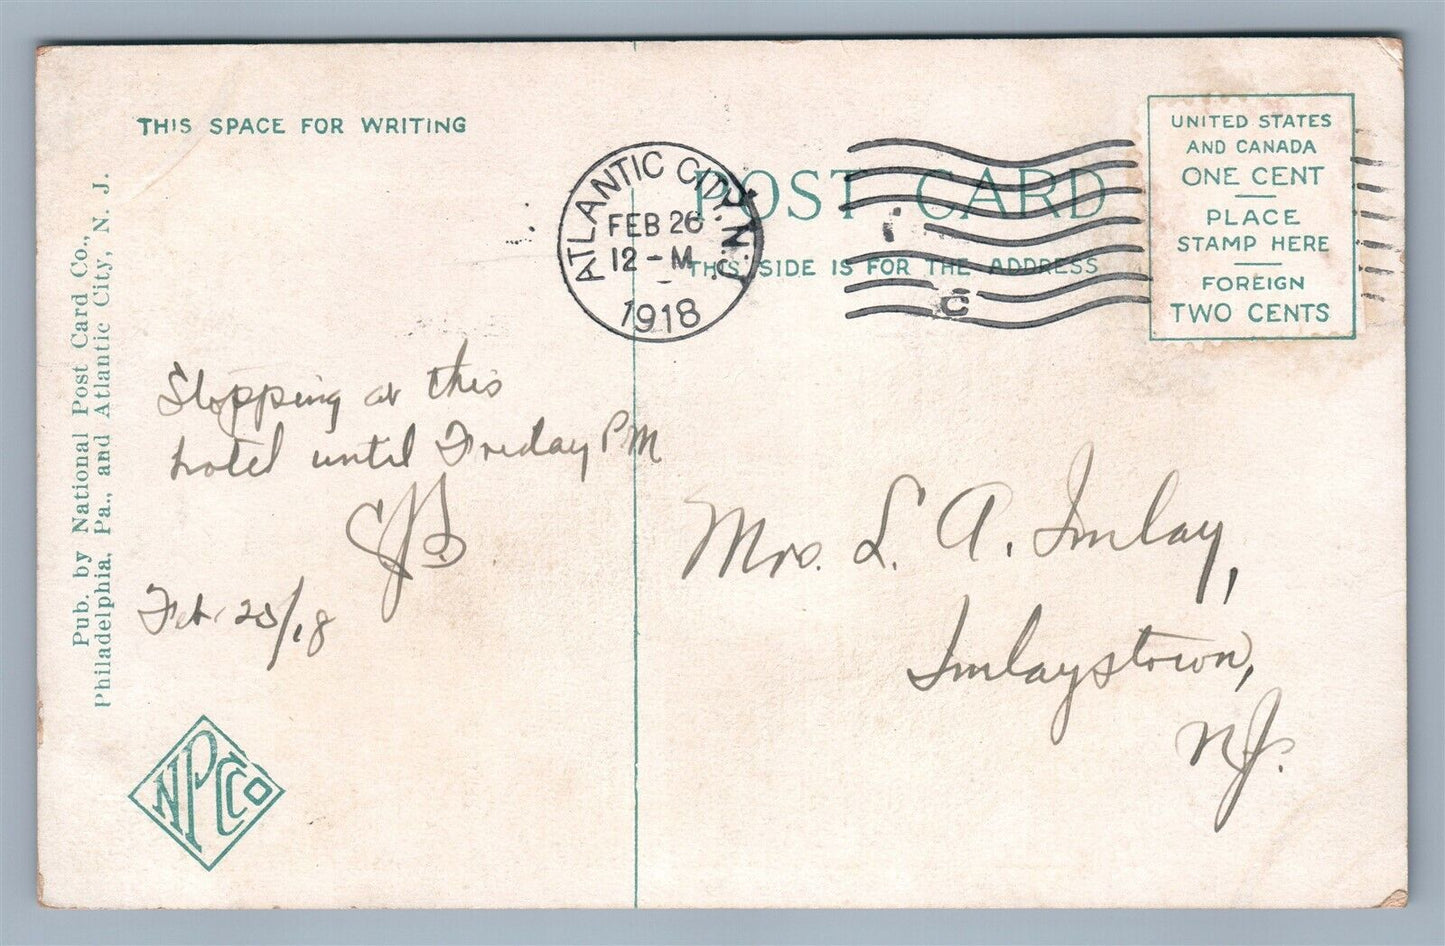 THIS SPACE FOR WRITING
Pub. by National Post Card Co.,
Philadelphia, Pa., and Atlantic City, N. J.
Stopping at this
hotel until Friday PM
Feb 25/18
NPCCO
ATLANTIC CITY, N.J.
FEB 26
12-M
1918
POST CARD
THIS SIDE IS FOR THE ADDRESS
C
UNITED STATES
AND CANADA
ONE CENT
PLACE
STAMP HERE
FOREIGN
TWO CENTS
Mrs. L. A. Imlay,
Imlaystown,
N.J.